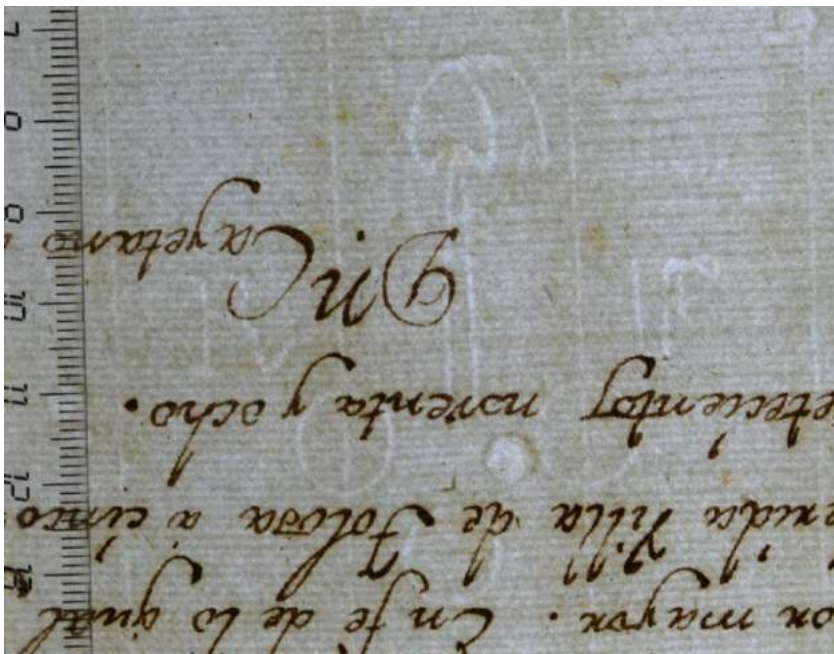 on mayor. En fe de lo qual
erida Villa de Tolosa à cinco
etecientos noventa y ocho.
Dn. Cayetano